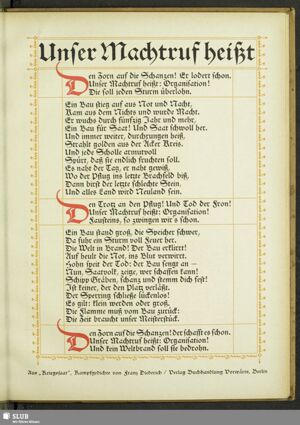 Unser Machtruf heißt
Den Zorn auf die Schanzen! Er lodert schon.
Unser Machtruf heißt: Organisation!
Die soll jeden Sturm überlohn.
Ein Bau stieg auf aus Not und Nacht,
Kam aus dem Nichts und wurde Macht.
Er wuchs durch fünfzig Jahr und mehr,
Ein Bau für Saat! Und Saat schwoll her.
Und immer weiter, durchdrungen heiß,
Strahlt golden aus der Acker Kreis.
Und jede Scholle atmutvoll
Spürt, daß sie endlich fruchten soll.
Es naht der Tag, er naht gewiß,
Wo der Pflug ins letzte Brachfeld biß,
Dann birst der letzte schlechte Stein,
Und alles Land wird Neuland sein.
Den Trotz an den Pflug! Und Tod der Fron!
Unser Machtruf heißt: Organisation!
Fausteins, so zwingen wir's schon.
Ein Bau stand groß, die Speicher schwer,
Da fuhr ein Sturm voll Feuer her.
Die Welt in Brand! Der Bau erklirrt!
Auf heult die Not, ins Blut verwirrt.
Hohn speit der Tod: der Bau sengt an —
Nun, Saatvolk, zeige, wer schaffen kann!
Schipp Gräben, schanz und stemm dich fest!
Ist keiner, der den Platz verläßt.
Der Sperring schließe lückenlos!
Es gilt: klein werden oder groß.
Die Flamme muß vom Bau zurück:
Die Zeit braucht unser Meisterstück.
Den Zorn auf die Schanzen! der schafft es schon.
Unser Machtruf heißt: Organisation!
Und kein Weltbrand soll sie bedrohn.
Aus „Kriegssaat", Kampfgedichte von Franz Diederich / Verlag Buchhandlung Vorwärts, Berlin
SLUB